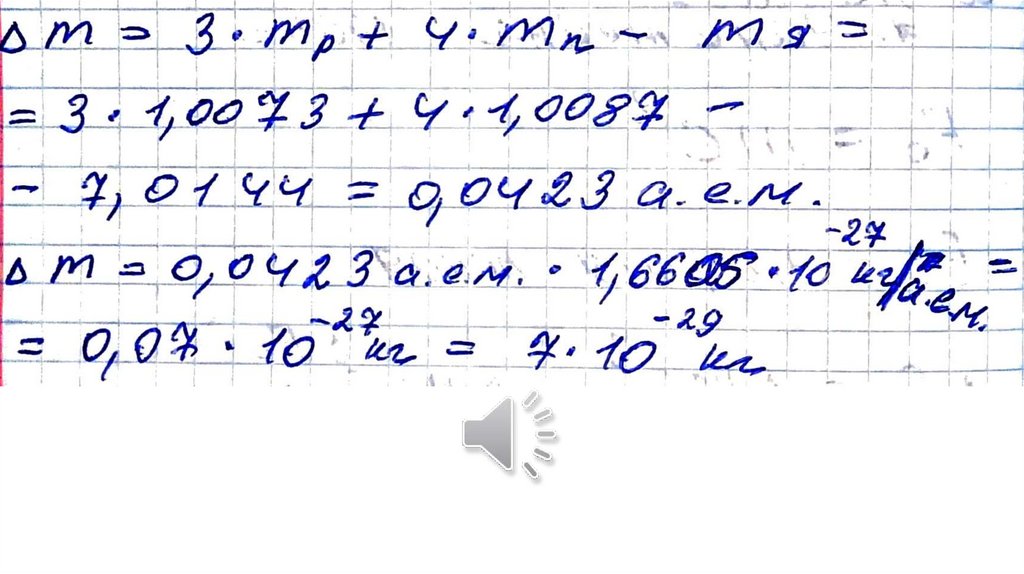 Δm = 3·mp + 4·mn − mя =
= 3·1,0073 + 4·1,0087 −
− 7,0144 = 0,0423 а.е.м.
Δm = 0,0423 а.е.м. · 1,6605·10⁻²⁷ кг/а.е.м. =
= 0,07·10⁻²⁷ кг = 7·10⁻²⁹ кг